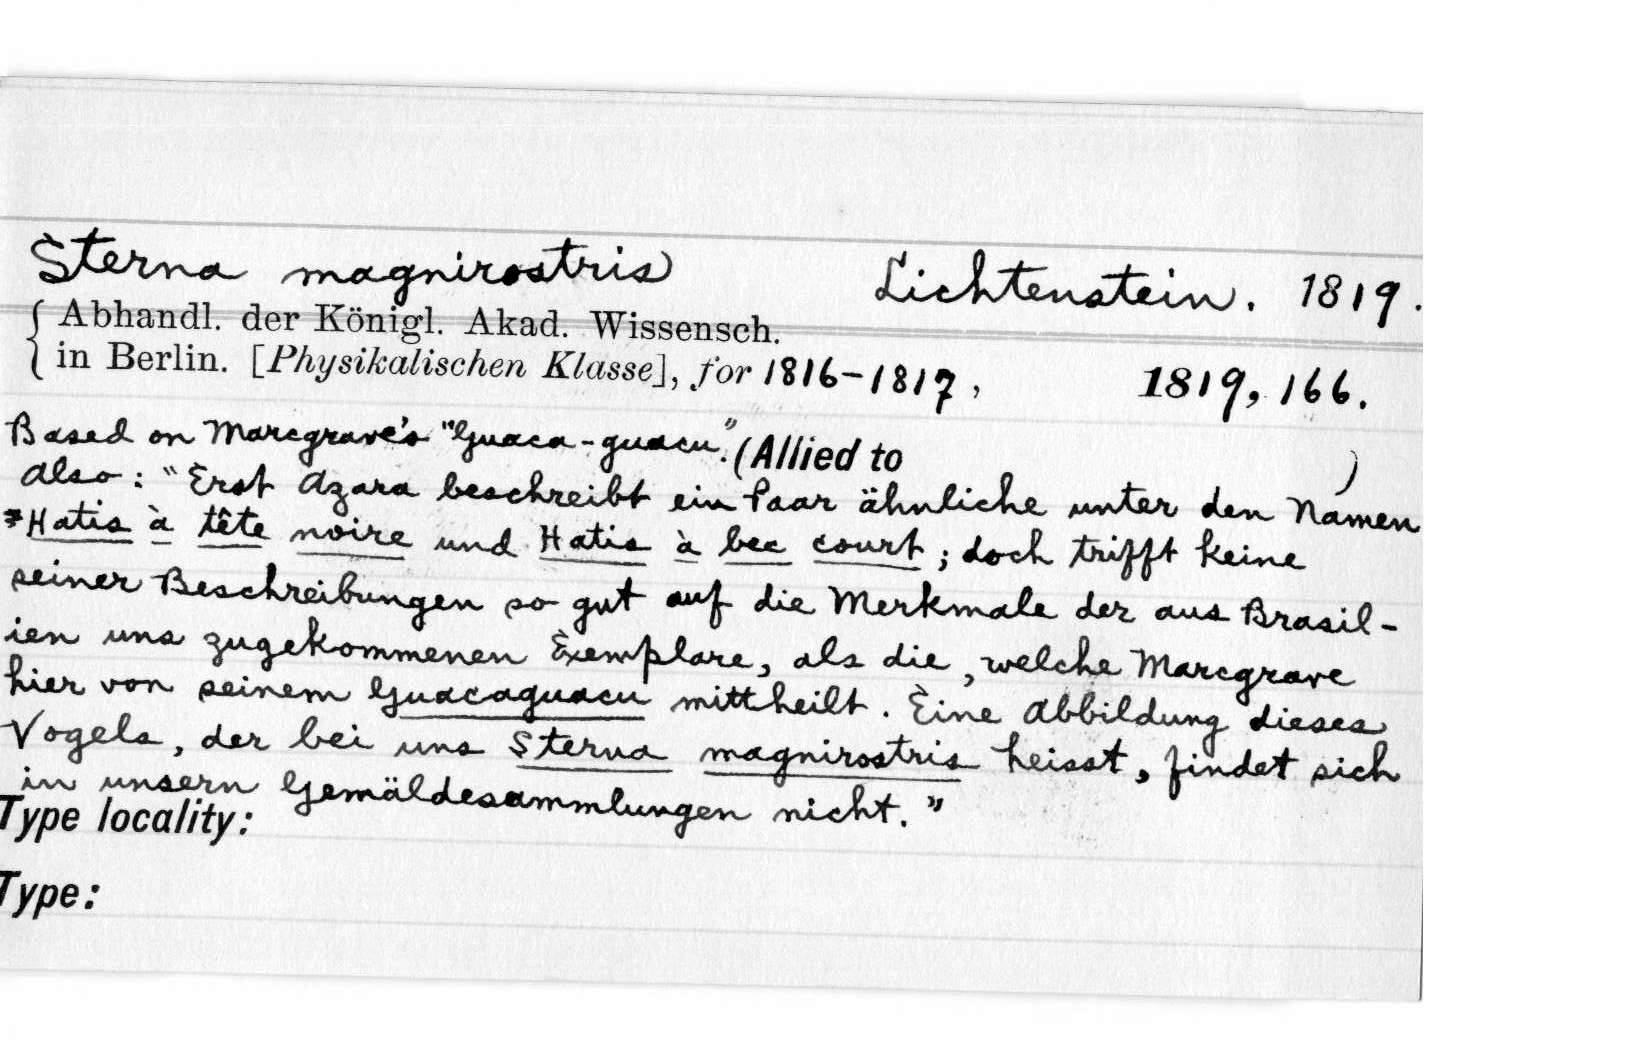 Sterna magnirostris Lichtenstein. 1819.
Abhandl. der Königl. Akad. Wissensch.
in Berlin. [Physikalischen Klasse], for 1816-1817, 1819, 166.
Based on Marcgrave's "Guaca-guacu". (Allied to )
Also: "Erst Azara beschreibt ein Paar ähnliche unter den Namen
Hatis à tête noire und Hatis à bec court; doch trifft keine
seiner Beschreibungen so gut auf die Merkmale der aus Brasil-
ien uns zugekommenen Exemplare, als die, welche Marcgrave
hier von seinem Guacaguacu mittheilt. Eine Abbildung dieses
Vogels, der bei uns Sterna magnirostris heisst, findet sich
in unsern Gemäldesammlungen nicht."
Type locality:
Type: